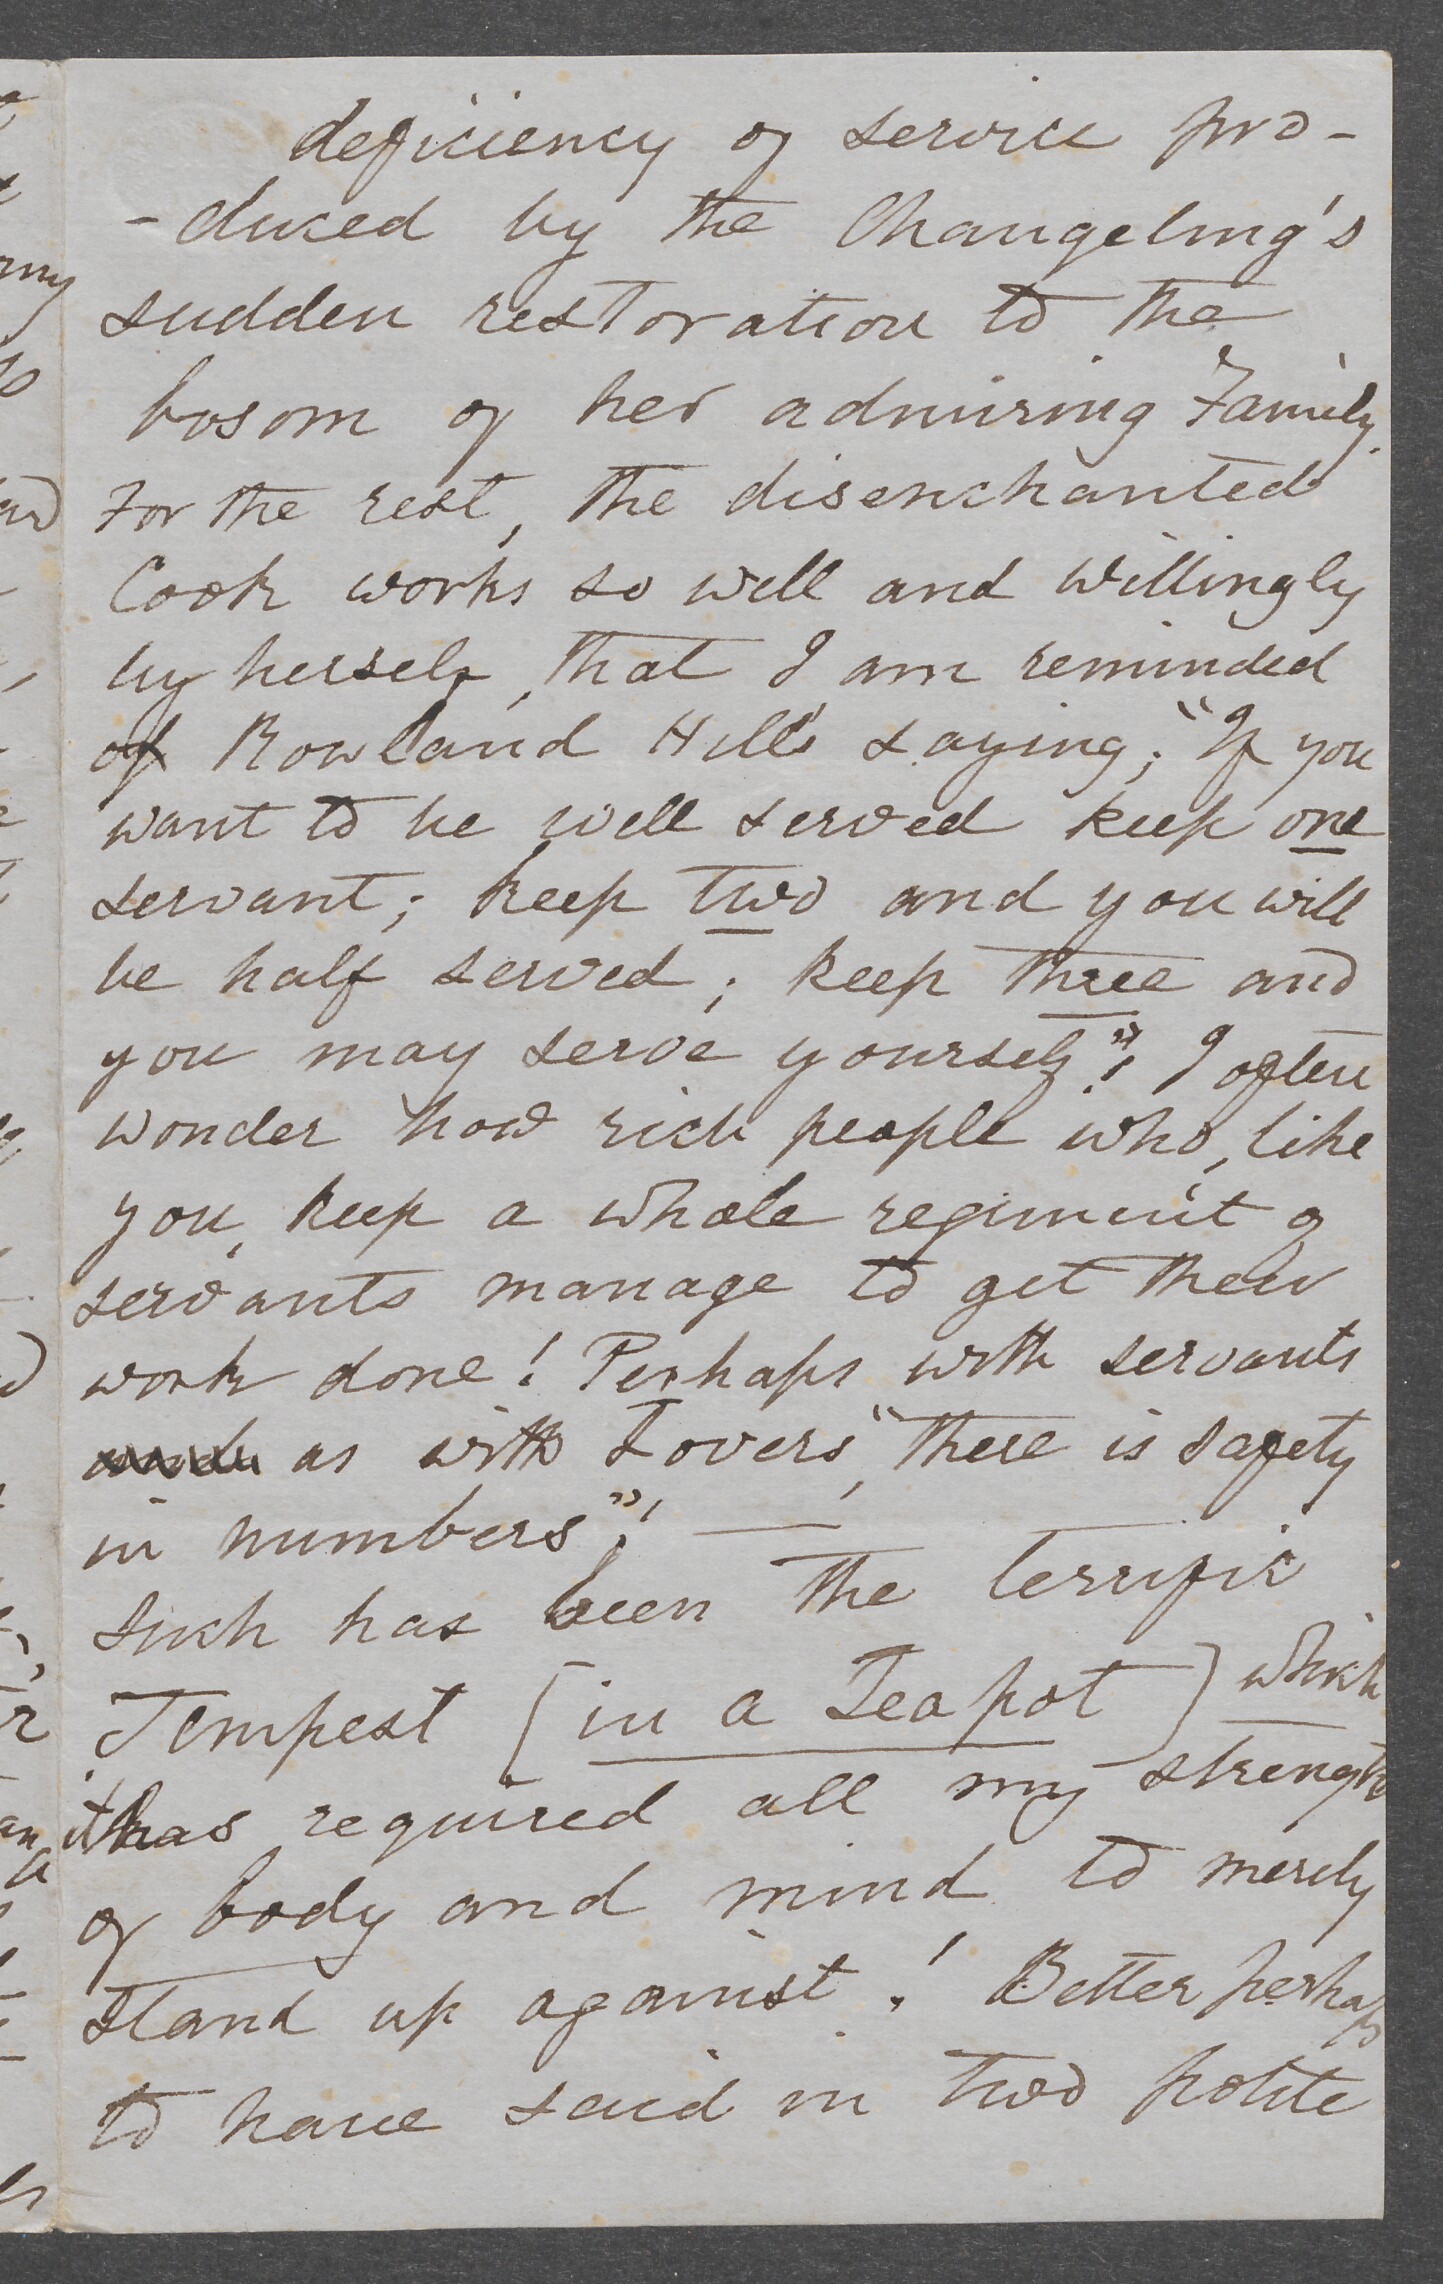 deficiency of service pro-
-duced by the Changeling's
sudden restoration to the
bosom of her admiring Family.
For the rest, the disenchanted
Cook works so well and willingly
by herself, that I am reminded
of Rowland Hill's saying; "If you
want to be well served keep one
servant; keep two and you will
be half served; keep three and
you may serve yourself"! I often
wonder how rich people who, like
you, keep a whole regiment of
servants manage to get their
work done! Perhaps with servants
as with Lovers, "there is safety
in numbers"! —
Such has been the terrific
Tempest [in a Teapot] which
it has required all my strength
of body and mind to merely
stand up against! Better perhaps
to have said in two polite